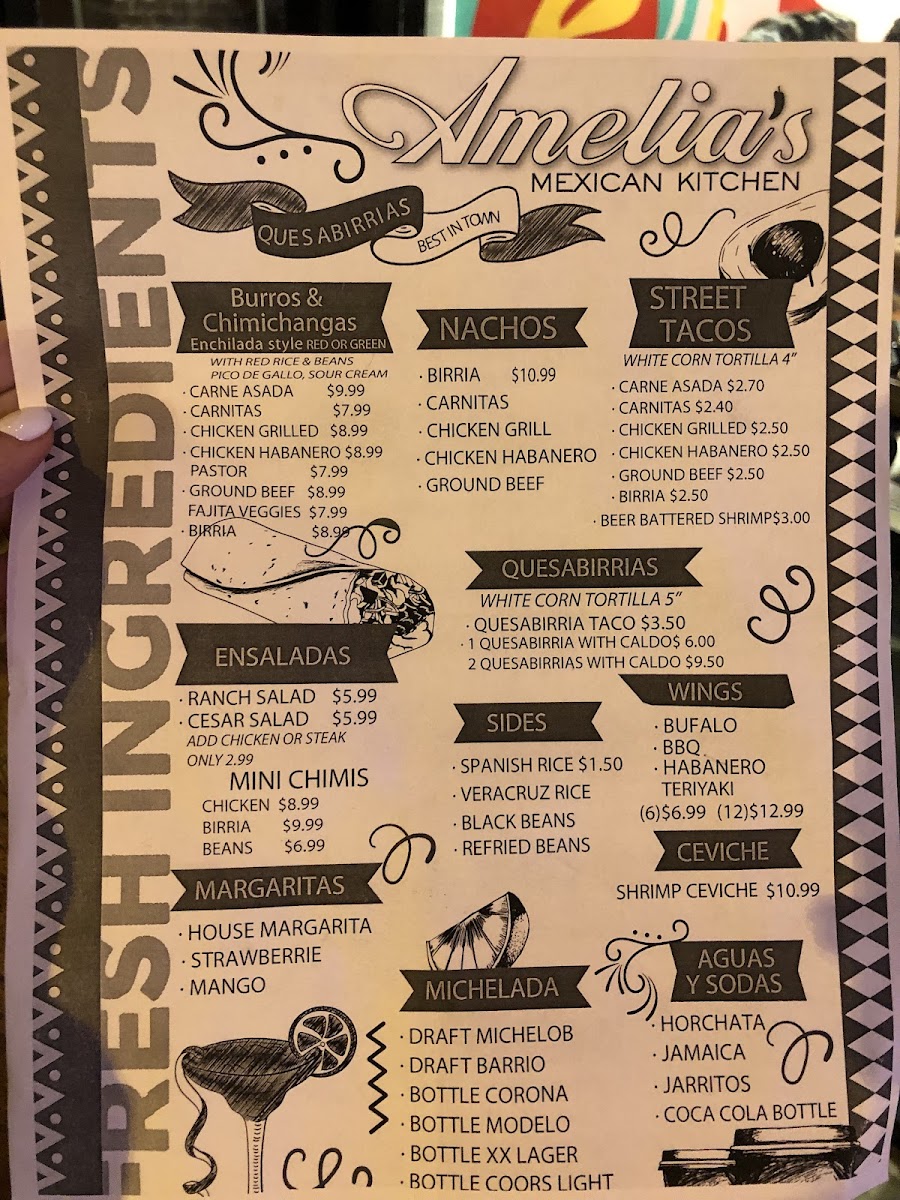 FRESH INGREDIENTS
Amelia's
MEXICAN KITCHEN
QUESABIRRIAS
BEST IN TOWN
Burros &
Chimichangas
Enchilada style RED OR GREEN
WITH RED RICE & BEANS
PICO DE GALLO, SOUR CREAM
· CARNE ASADA $9.99
· CARNITAS $7.99
· CHICKEN GRILLED $8.99
· CHICKEN HABANERO $8.99
PASTOR $7.99
· GROUND BEEF $8.99
FAJITA VEGGIES $7.99
· BIRRIA $8.99
NACHOS
· BIRRIA $10.99
· CARNITAS
· CHICKEN GRILL
· CHICKEN HABANERO
· GROUND BEEF
STREET
TACOS
WHITE CORN TORTILLA 4"
· CARNE ASADA $2.70
· CARNITAS $2.40
· CHICKEN GRILLED $2.50
· CHICKEN HABANERO $2.50
· GROUND BEEF $2.50
· BIRRIA $2.50
· BEER BATTERED SHRIMP$3.00
QUESABIRRIAS
WHITE CORN TORTILLA 5"
· QUESABIRRIA TACO $3.50
· 1 QUESABIRRIA WITH CALDO$ 6.00
2 QUESABIRRIAS WITH CALDO $9.50
ENSALADAS
· RANCH SALAD $5.99
· CESAR SALAD $5.99
ADD CHICKEN OR STEAK
ONLY 2.99
MINI CHIMIS
CHICKEN $8.99
BIRRIA $9.99
BEANS $6.99
SIDES
· SPANISH RICE $1.50
· VERACRUZ RICE
· BLACK BEANS
· REFRIED BEANS
WINGS
· BUFALO
· BBQ
· HABANERO
TERIYAKI
(6)$6.99 (12)$12.99
CEVICHE
SHRIMP CEVICHE $10.99
MARGARITAS
· HOUSE MARGARITA
· STRAWBERRIE
· MANGO
MICHELADA
· DRAFT MICHELOB
· DRAFT BARRIO
· BOTTLE CORONA
· BOTTLE MODELO
· BOTTLE XX LAGER
· BOTTLE COORS LIGHT
AGUAS
Y SODAS
· HORCHATA
· JAMAICA
· JARRITOS
· COCA COLA BOTTLE